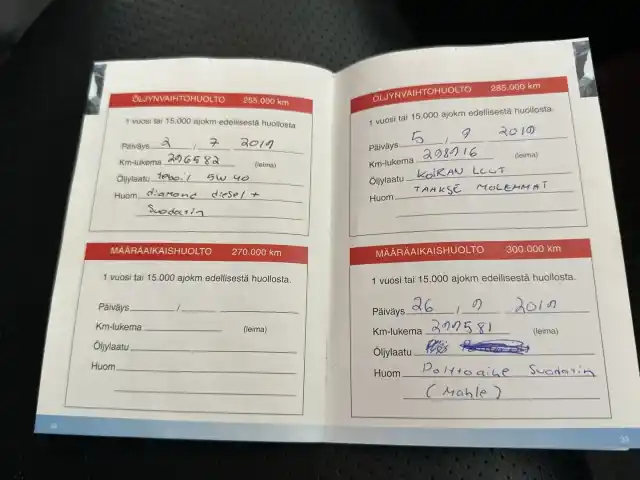 ÖLJYNVAIHTOHUOLTO 255.000 km
1 vuosi tai 15.000 ajokm edellisestä huollosta
Päiväys 2 / 7 2019
Km-lukema 296582 (leima)
Öljylaatu teboil 5W40
Huom diamond diesel +
Suodatin
MÄÄRÄAIKAISHUOLTO 270.000 km
1 vuosi tai 15.000 ajokm edellisestä huollosta.
Päiväys / 
Km-lukema (leima)
Öljylaatu
Huom
ÖLJYNVAIHTOHUOLTO 285.000 km
1 vuosi tai 15.000 ajokm edellisestä huollosta.
Päiväys 5 / 9 2019
Km-lukema 298916 (leima)
Öljylaatu KOIRAN LUUT
Huom TAAKSE MOLEMMAT
MÄÄRÄAIKAISHUOLTO 300.000 km
1 vuosi tai 15.000 ajokm edellisestä huollosta.
Päiväys 26 / 9 2019
Km-lukema 299581 (leima)
Öljylaatu
Huom Polttoaine Suodatin
(Mahle)
33